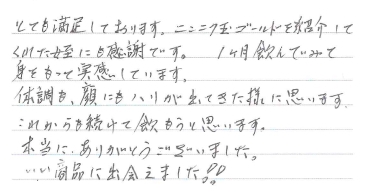 とても満足しております。ニニニ21至ゴールドを紹介して
くれた姪にも感謝です。 1ヶ月飲んでみて
身をもって実感しています。
体調も、顔にもハリが出てきた様に思います。
これからも続けて飲もうと思います。
本当に、ありがとうございました。
いい商品に出会えました!!